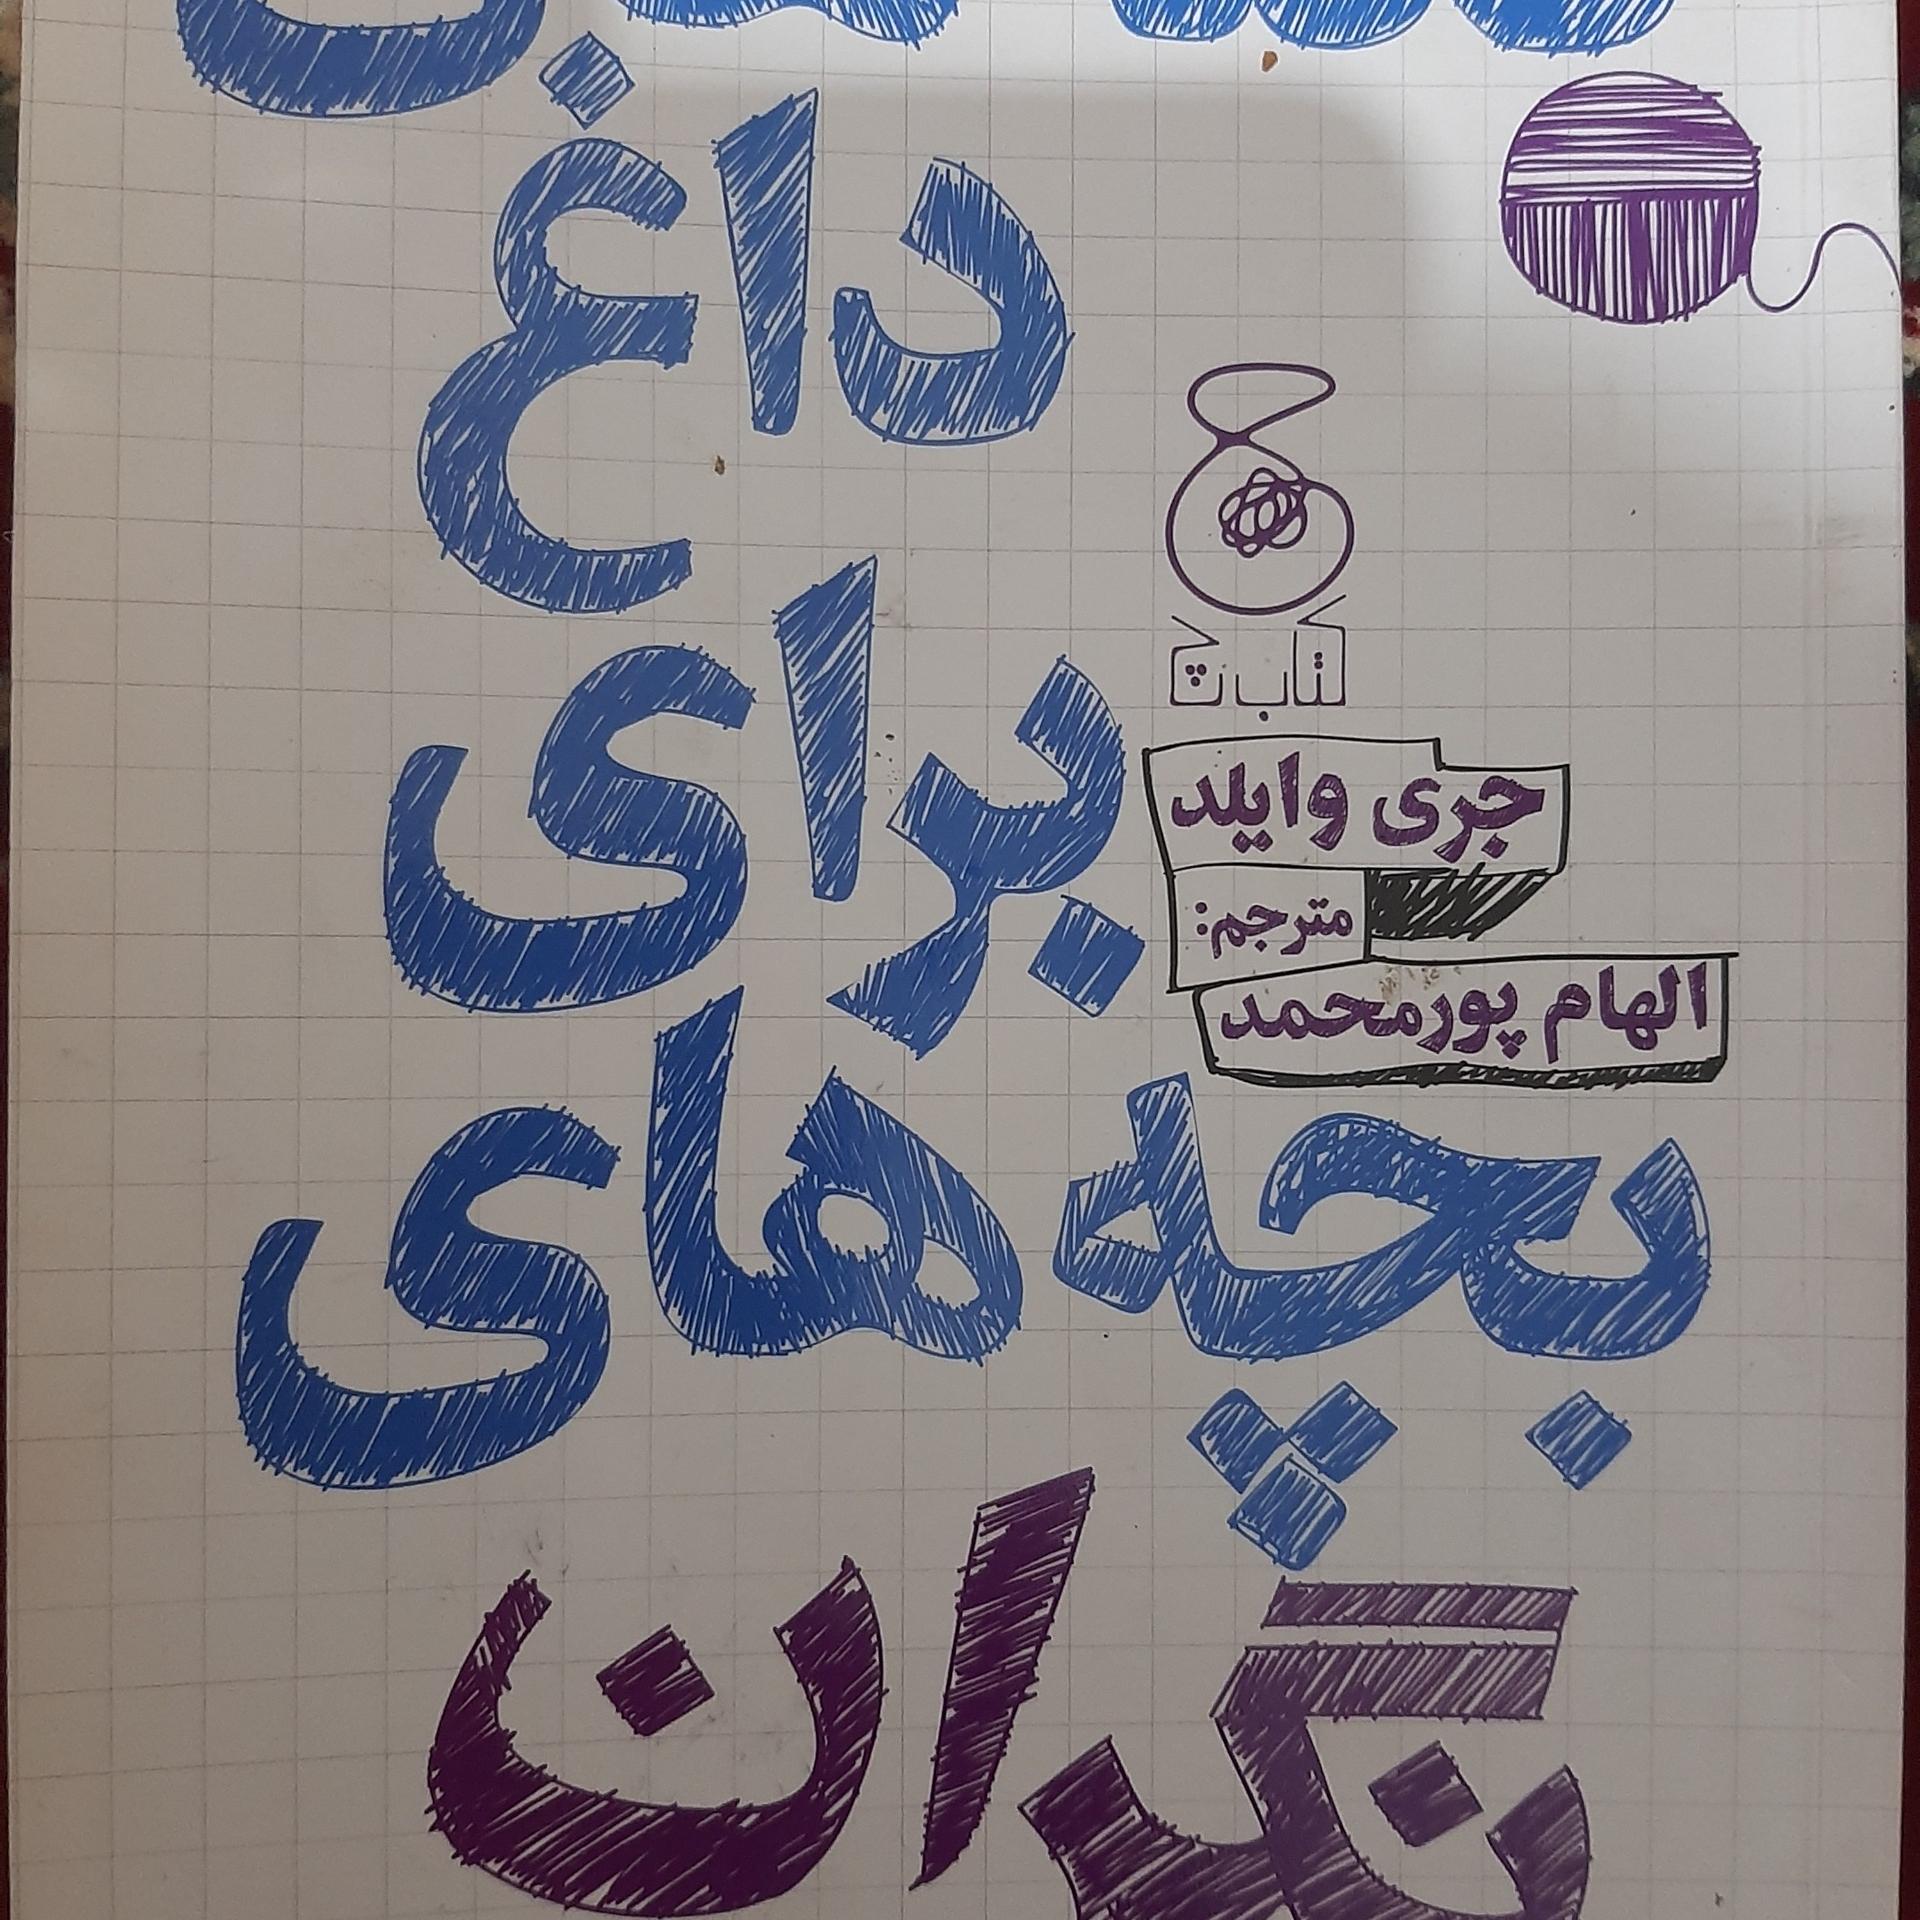 داغ
برای
کتاب چ
جری وایلد
مترجم:
الهام پورمحمد
بچه‌های
نگران